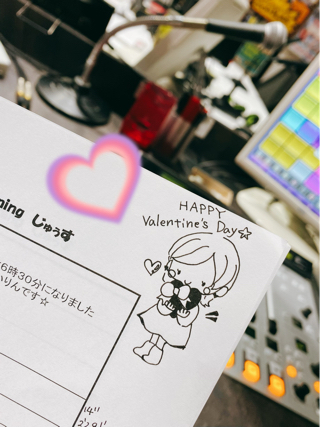 HAPPY
Valentine's Day☆
ning じゅうす
6時30分になりました
りんです☆
14"